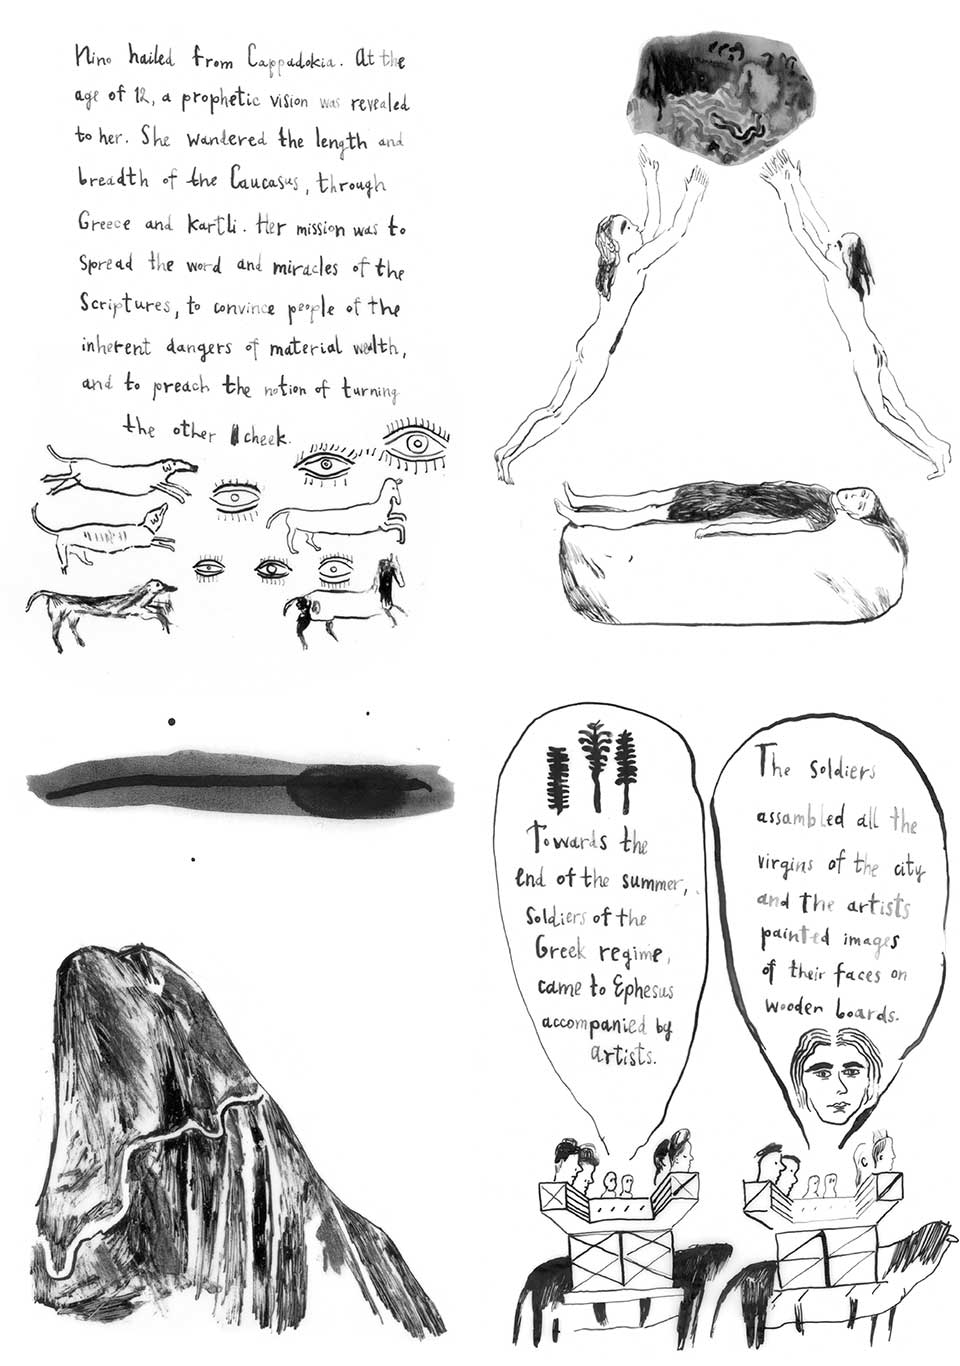 Nino hailed from Cappadokia. At the
age of 12, a prophetic vision was revealed
to her. She wandered the length and
breadth of the Caucasus, through
Greece and Kartli. Her mission was to
spread the word and miracles of the
Scriptures, to convince people of the
inherent dangers of material wealth,
and to preach the notion of turning
the other cheek.
Towards the
end of the summer,
Soldiers of the
Greek regime,
came to Ephesus
accompanied by
artists.
The soldiers
assambled all the
virgins of the city
and the artists
painted images
of their faces on
wooden boards.